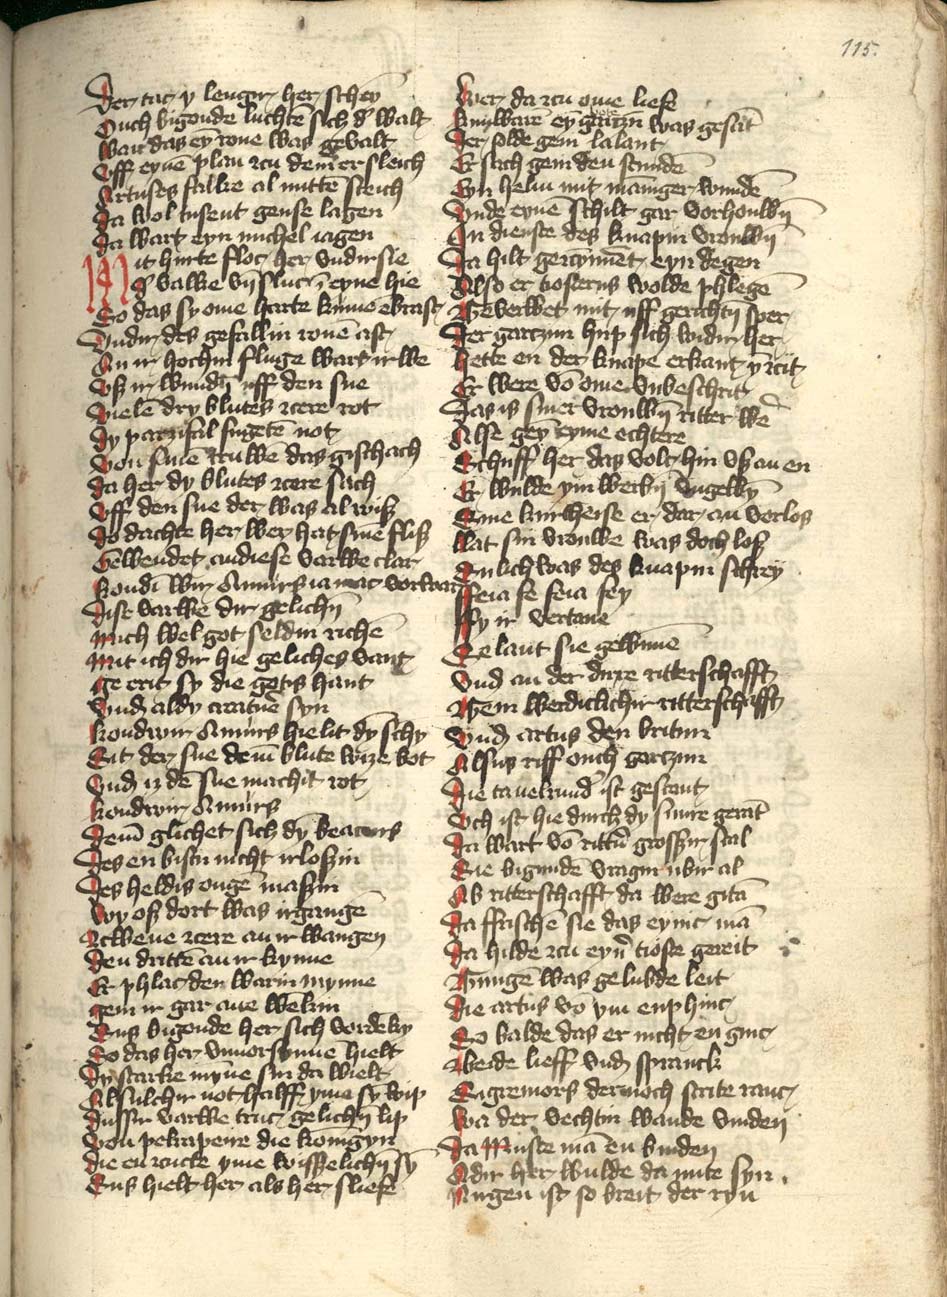 115.
Der tac y lengir her scheȳ
Ouch bigonde luchtē sich d' walt
Wan das eȳ rone was gevalt
Uff eynē plan zcu dem er sleich
Artuses falke al mitte streich
Da wol tusent gense lagen
Da wart eyn michel iagen
Mit hurte floc her vndir sie
D' valke vn̄ sluc ir eyne hie
So das sy ome harte kume ebrast
Vndir des gefallin ronē ast
An ir hochin fluge wart ir we
Vß ir wundī uff den sne
Vielē dry blutes zcere rot
Dy parzifal fugetē not
Von sinē truwē das gischach
Da her dy blutes zcere sach
Uff den sne der was al wiß
Do dachte her wer hat sinē fliß
Gewendet an diese varwe clar
Kondī wir Amurs ia mac vorwar
Disē varwē dir gelichī
Mich wel got seldin richē
Mit ich dir hie geliches vant
Ge erit sy die gotis hant
Vnd aldy creatuē syn
Kondwir Amurs hie lit dȳ schȳ
Sit der sne dem blute wize bot
Vnd iz dē sne machit rot
Kondwir Amurs
Dem glichet sich dȳ beacurs
Des en bistu nicht irloßin
Des heldis ougē maßin
Wy oß dort was irgangē
Zcwene zcere an ir wangen
Den drittē an ir kynne
Er phlac den warin mynne
gein ir gar ane wekin
Sus bigonde her sich vordēkȳ
So das her vnvorsȳnnē hielt
Dy starke mȳne sin da wielt
Absulchir not halff yme sȳ wip
Dussir varwe truc gelichī lip
Von pekrapeire die konīgȳn
Die en zcucte yme wisselichī sȳ
Sus hielt her als her sliefe
Wer da zcu ome liefe
Kuȳware eȳ garczn was gesāt
Der solde gein lalant
Er sach gein den stundē
Eyn helm mit māniger wundē
Vnde eynē schilt gar vorhouwī
In dienste des knapin vrouwī
Da hilt gerzcymīet eyn degen
Also er tiosterns wolde phlegē
Geverwet mit uff gerichtī sper
Der garczun hup sich widir her
hette en der knape erkant ȳ zcit
Er were vō ome vnbeschrit
Das is siner vrouwī ritter we'
Alse geȳ eyme echtere
Schuff her das volk hin vß an en
Er wulde ym werbī vngelbȳ
Sine kurtheise er dar an verlos
Lat sin vrouwe was doch loß
Sulich was des knapin schrey
ffeia fe feia fey
ffy ir vertane
Ge laut sie gewinnē
Vnd an der dirre ritterschafft
Gein werdiclichir ritterschafft
Vnd artus den britun
Alsus riff ouch garczun
Die tavelrund' ist gescant
Och ist hie durch dy snure gerāt
Da wart vō rittirn großir scal
Sie bigundē vragin ubir al
Ab ritterschafft da were gitā
Da ffrischē sie das eynic mā
Da hilde zcu eyn' tioste gereit
Gnugē was gelubde leit
Die artus vō ym enphinc
So balde das er nicht en ginc
Beide lieff vnd spranck
Sigremors der noch strite ranc
Wa der vechtin wande vinden
Da muste mā en binden
Adir her wulde da mite syn
Nirgen ist so breit der ryn